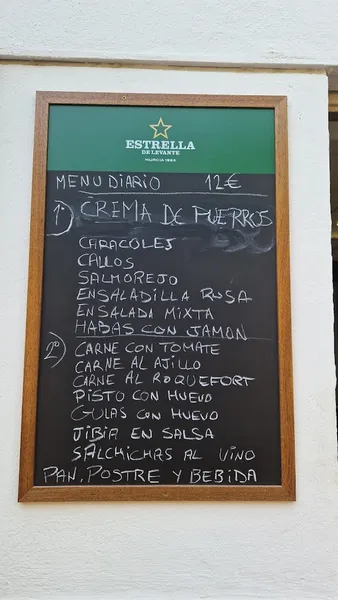 ESTRELLA
DE LEVANTE
MURCIA 1963
MENU DIARIO 12€
1) CREMA DE PUERROS
CARACOLES
CALLOS
SALMOREJO
ENSALADILLA RUSA
ENSALADA MIXTA
HABAS CON JAMON
2º) CARNE CON TOMATE
CARNE AL AJILLO
CARNE AL ROQUEFORT
PISTO CON HUEVO
GULAS CON HUEVO
JIBIA EN SALSA
SALCHICHAS AL VINO
PAN, POSTRE Y BEBIDA